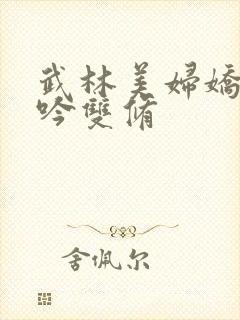 武林美婦嬌
吟雙脩
舍佩尔